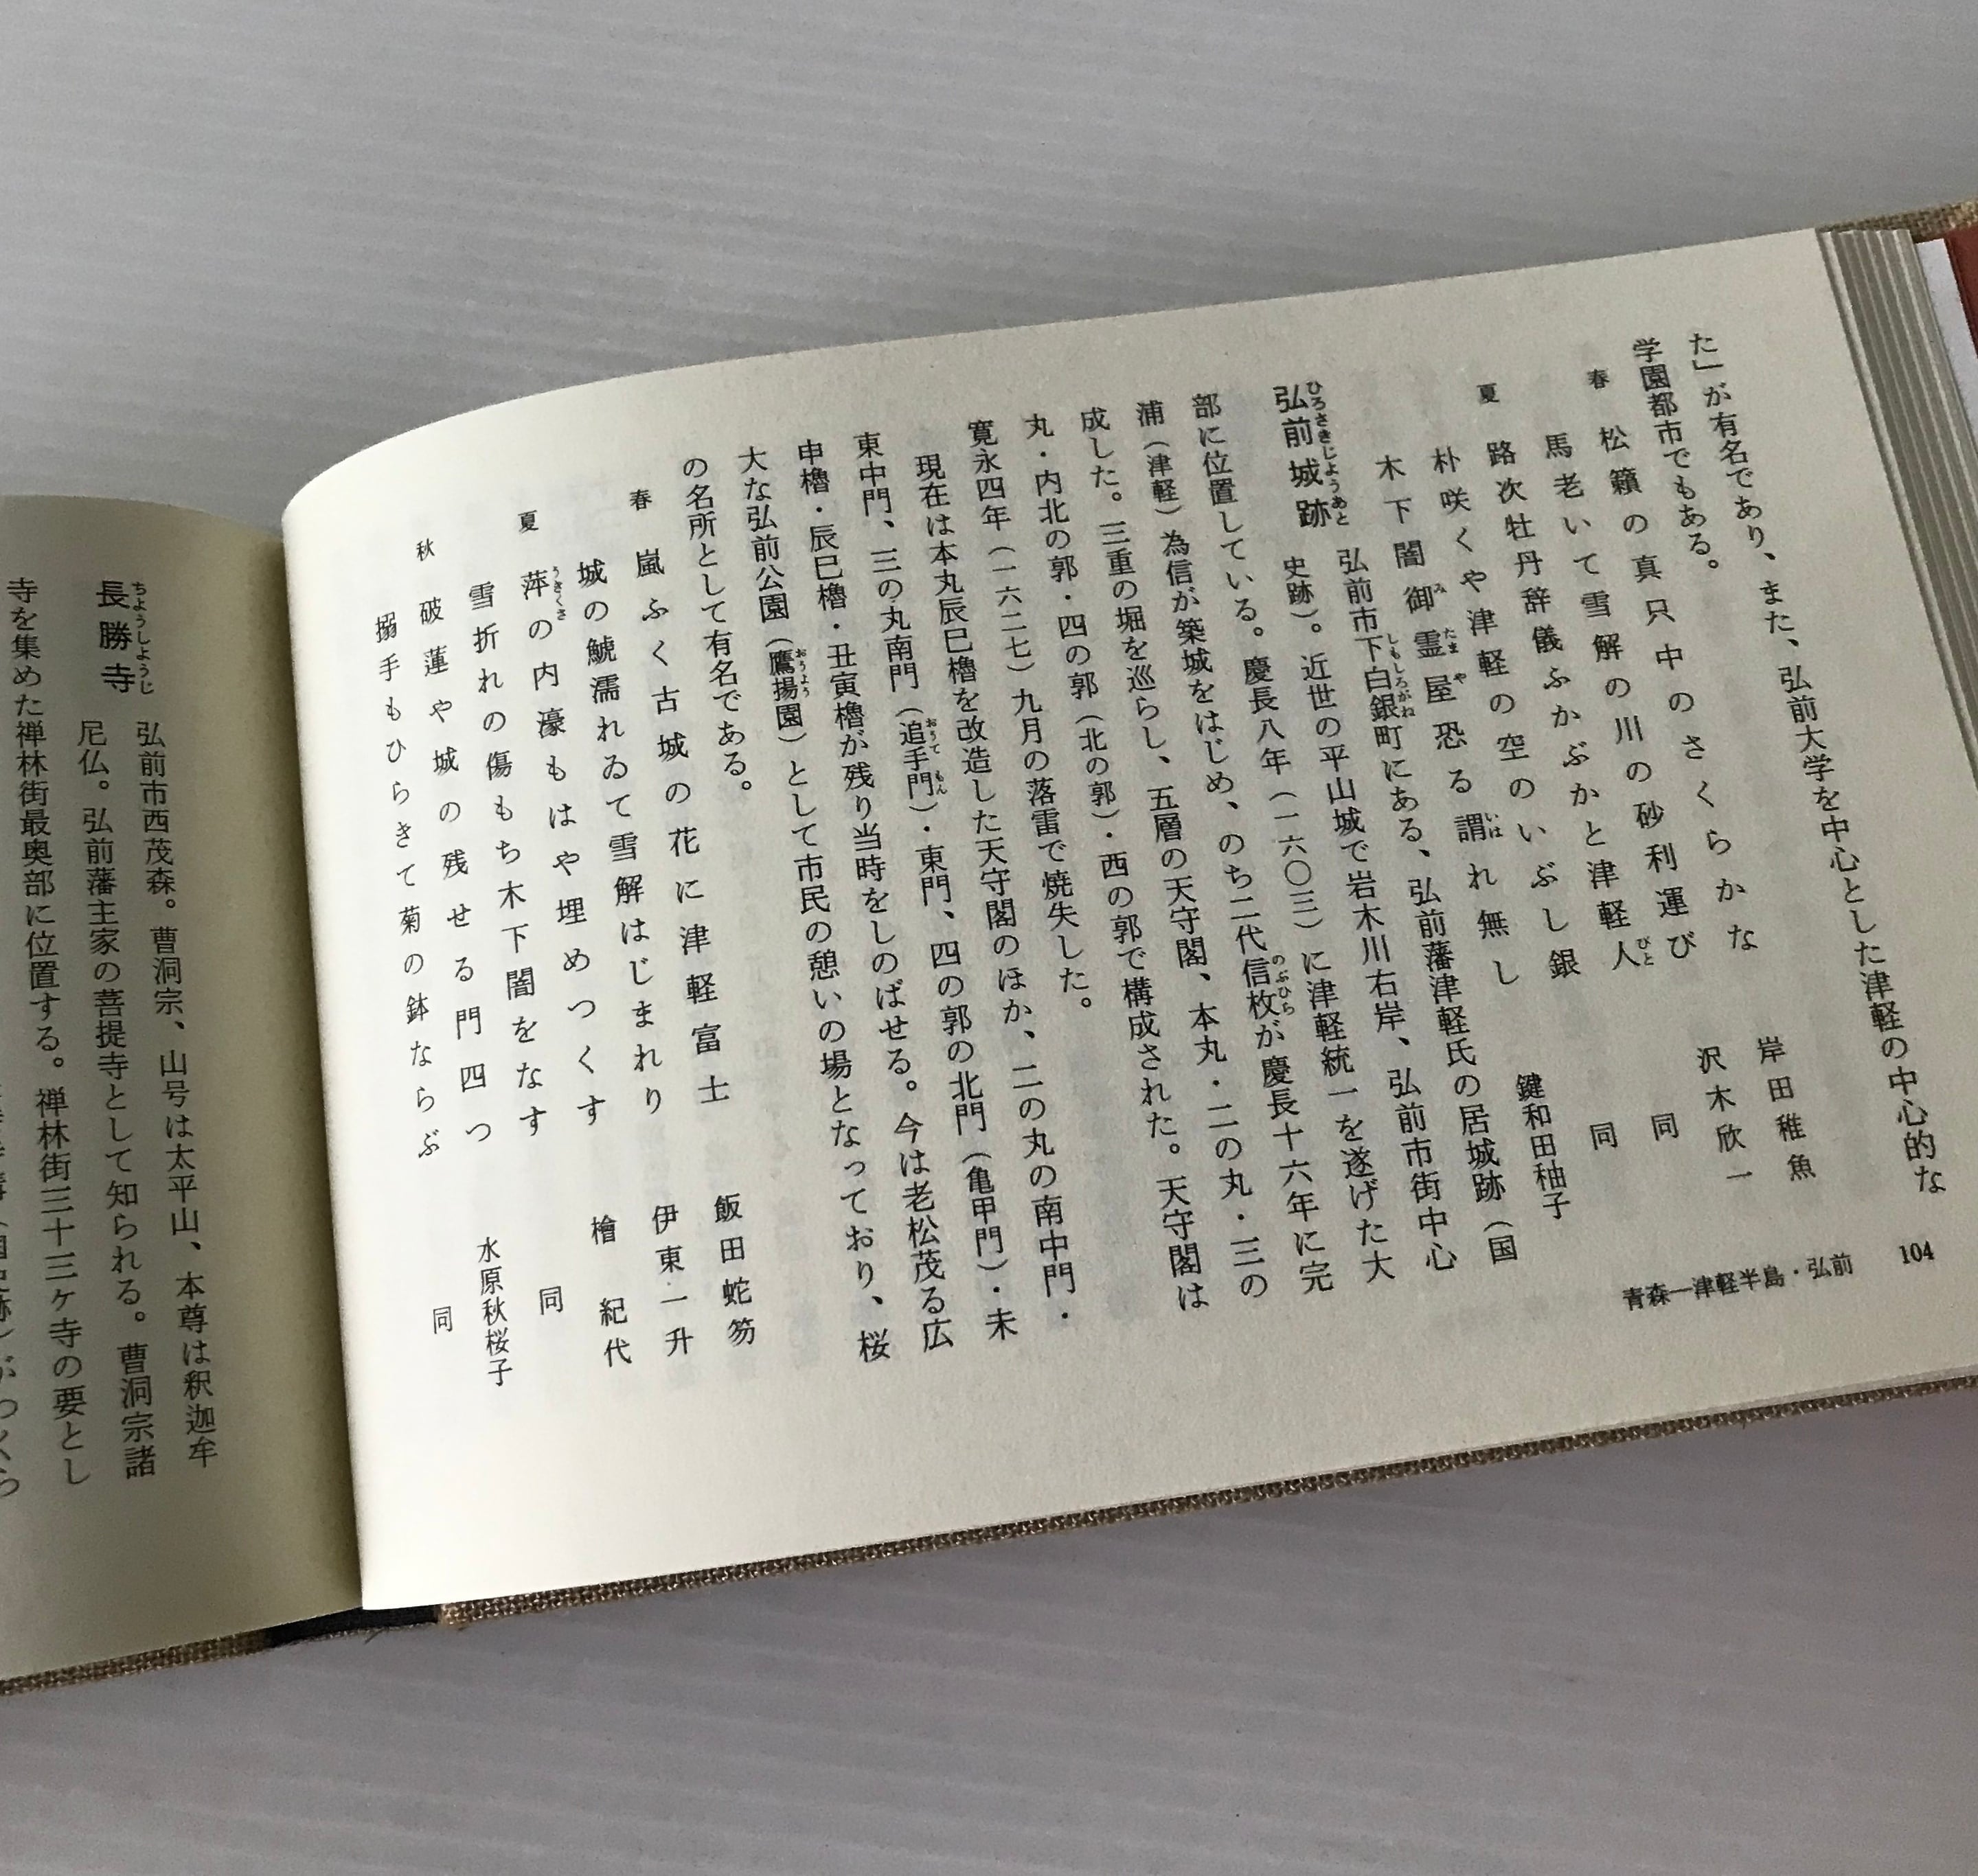 104
青森―津軽半島・弘前
た」が有名であり、また、弘前大学を中心とした津軽の中心的な
学園都市でもある。
春 松籟の真只中のさくらかな 岸田稚魚
馬老いて雪解の川の砂利運び 沢木欣一
夏 路次牡丹辞儀ふかぶかと津軽人 同
朴咲くや津軽の空のいぶし銀 同
木下闇御霊屋恐る謂れ無し 鍵和田秞子
弘前城跡 弘前市下白銀町にある、弘前藩津軽氏の居城跡（国
史跡）。近世の平山城で岩木川右岸、弘前市街中心
部に位置している。慶長八年（一六〇三）に津軽統一を遂げた大
浦（津軽）為信が築城をはじめ、のち二代信枚が慶長十六年に完
成した。三重の堀を巡らし、五層の天守閣、本丸・二の丸・三の
丸・内北の郭・四の郭（北の郭）・西の郭で構成された。天守閣は
寛永四年（一六二七）九月の落雷で焼失した。
現在は本丸辰巳櫓を改造した天守閣のほか、二の丸の南中門・
東中門、三の丸南門（追手門）・東門、四の郭の北門（亀甲門）・未
申櫓・辰巳櫓・丑寅櫓が残り当時をしのばせる。今は老松茂る広
大な弘前公園（鷹揚園）として市民の憩いの場となっており、桜
の名所として有名である。
春 嵐ふく古城の花に津軽富士 飯田蛇笏
城の鯱濡れゐて雪解はじまれり 伊東一升
夏 萍の内濠もはや埋めつくす 檜紀代
雪折れの傷もち木下闇をなす 同
秋 破蓮や城の残せる門四つ 水原秋桜子
搦手もひらきて菊の鉢ならぶ 同
長勝寺 弘前市西茂森。曹洞宗、山号は太平山、本尊は釈迦牟
尼仏。弘前藩主家の菩提寺として知られる。曹洞宗諸
寺を集めた禅林街最奥部に位置する。禅林街三十三ヶ寺の要とし